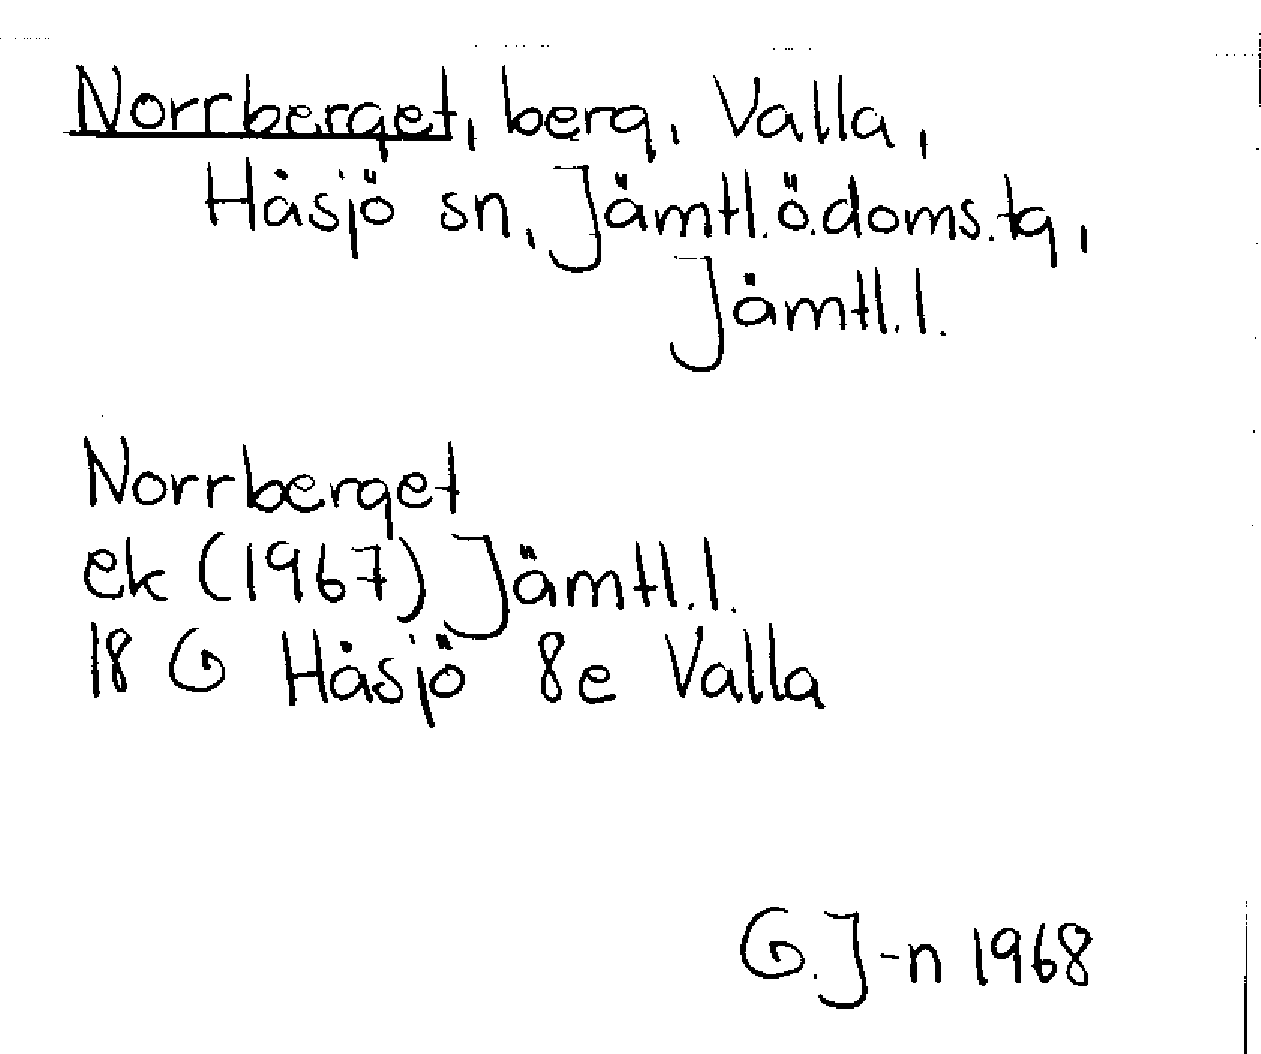 Norrberget, berg, Valla,
Håsjö sn, Jämtl.ö.doms.tg,
Jämtl.l.
Norrberget
ek (1967) Jämtl.l.
18 G Håsjö 8e Valla
G.J-n 1968